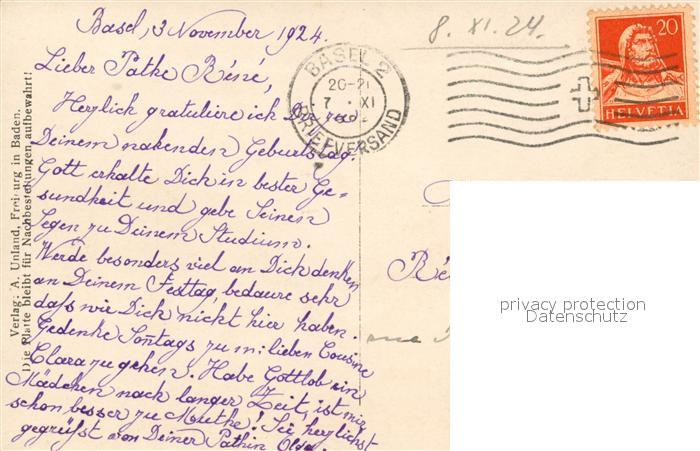 Basel, 3 November 1924.
Lieber Pathe Réné,
Herzlich gratuliere ich Dir zu
Deinem nahenden Geburtstag.
Gott erhalte Dich in bester Ge-
sundheit und gebe Seinen
Segen zu Deinem Studium.
Werde besonders viel an Dich denken
an Deinem Festtag, bedaure sehr
daß wir Dich nicht hier haben.
Gedenke Sonntags zu m: lieben Cousine
Clara zu gehen. Habe Gottlob ein
Mädchen nach langer Zeit, ist mir
schon besser zu Muthe! Sei herzlichst
gegrüßt von Deiner Pathin Olga.
Verlag: A. Unland, Freiburg in Baden.
Die Platte bleibt für Nachbestellungen aufbewahrt!
8. XI. 24.
BASEL 2
20-21
7. XI
BRIEFVERSAND
20
HELVETIA
Ré
privacy protection
Datenschutz